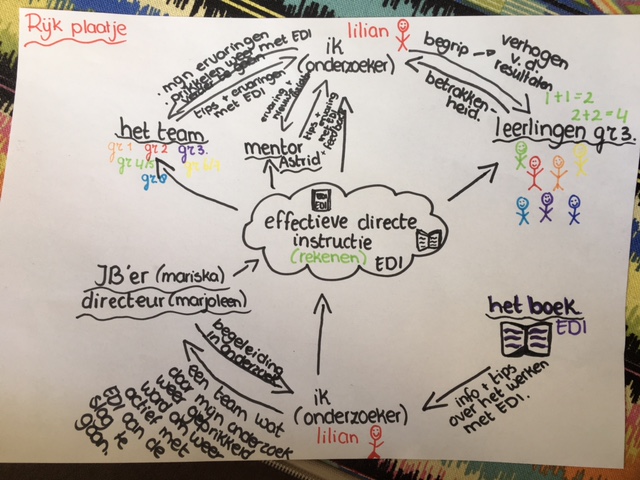 Rijk plaatje
lilian
ik
(onderzoeker)
begrip
verhogen
v. d.
resultaten
betrokken-
heid.
1+1=2
2+2=4
leerlingen gr 3.
mijn ervaringen
prikkelen weer met EDI
tips + ervaringen
met EDI
het team
gr 1 gr 2 gr 3.
gr 4/5 gr 6/7
gr 8
ervaring +
tips + ervaring
met EDI
+ feedback
mentor
Astrid
EDI
effectieve directe
instructie
(rekenen)
EDI
JB'er (mariska)
directeur (marjoleen)
begeleiding
in onderzoek
een team wat
door mijn onderzoek
weer geprikkeld
word om weer
actief met
EDI aan de
slag te
gaan.
ik
(onderzoeker)
lilian
het boek
EDI
info + tips
over het werken
met EDI.